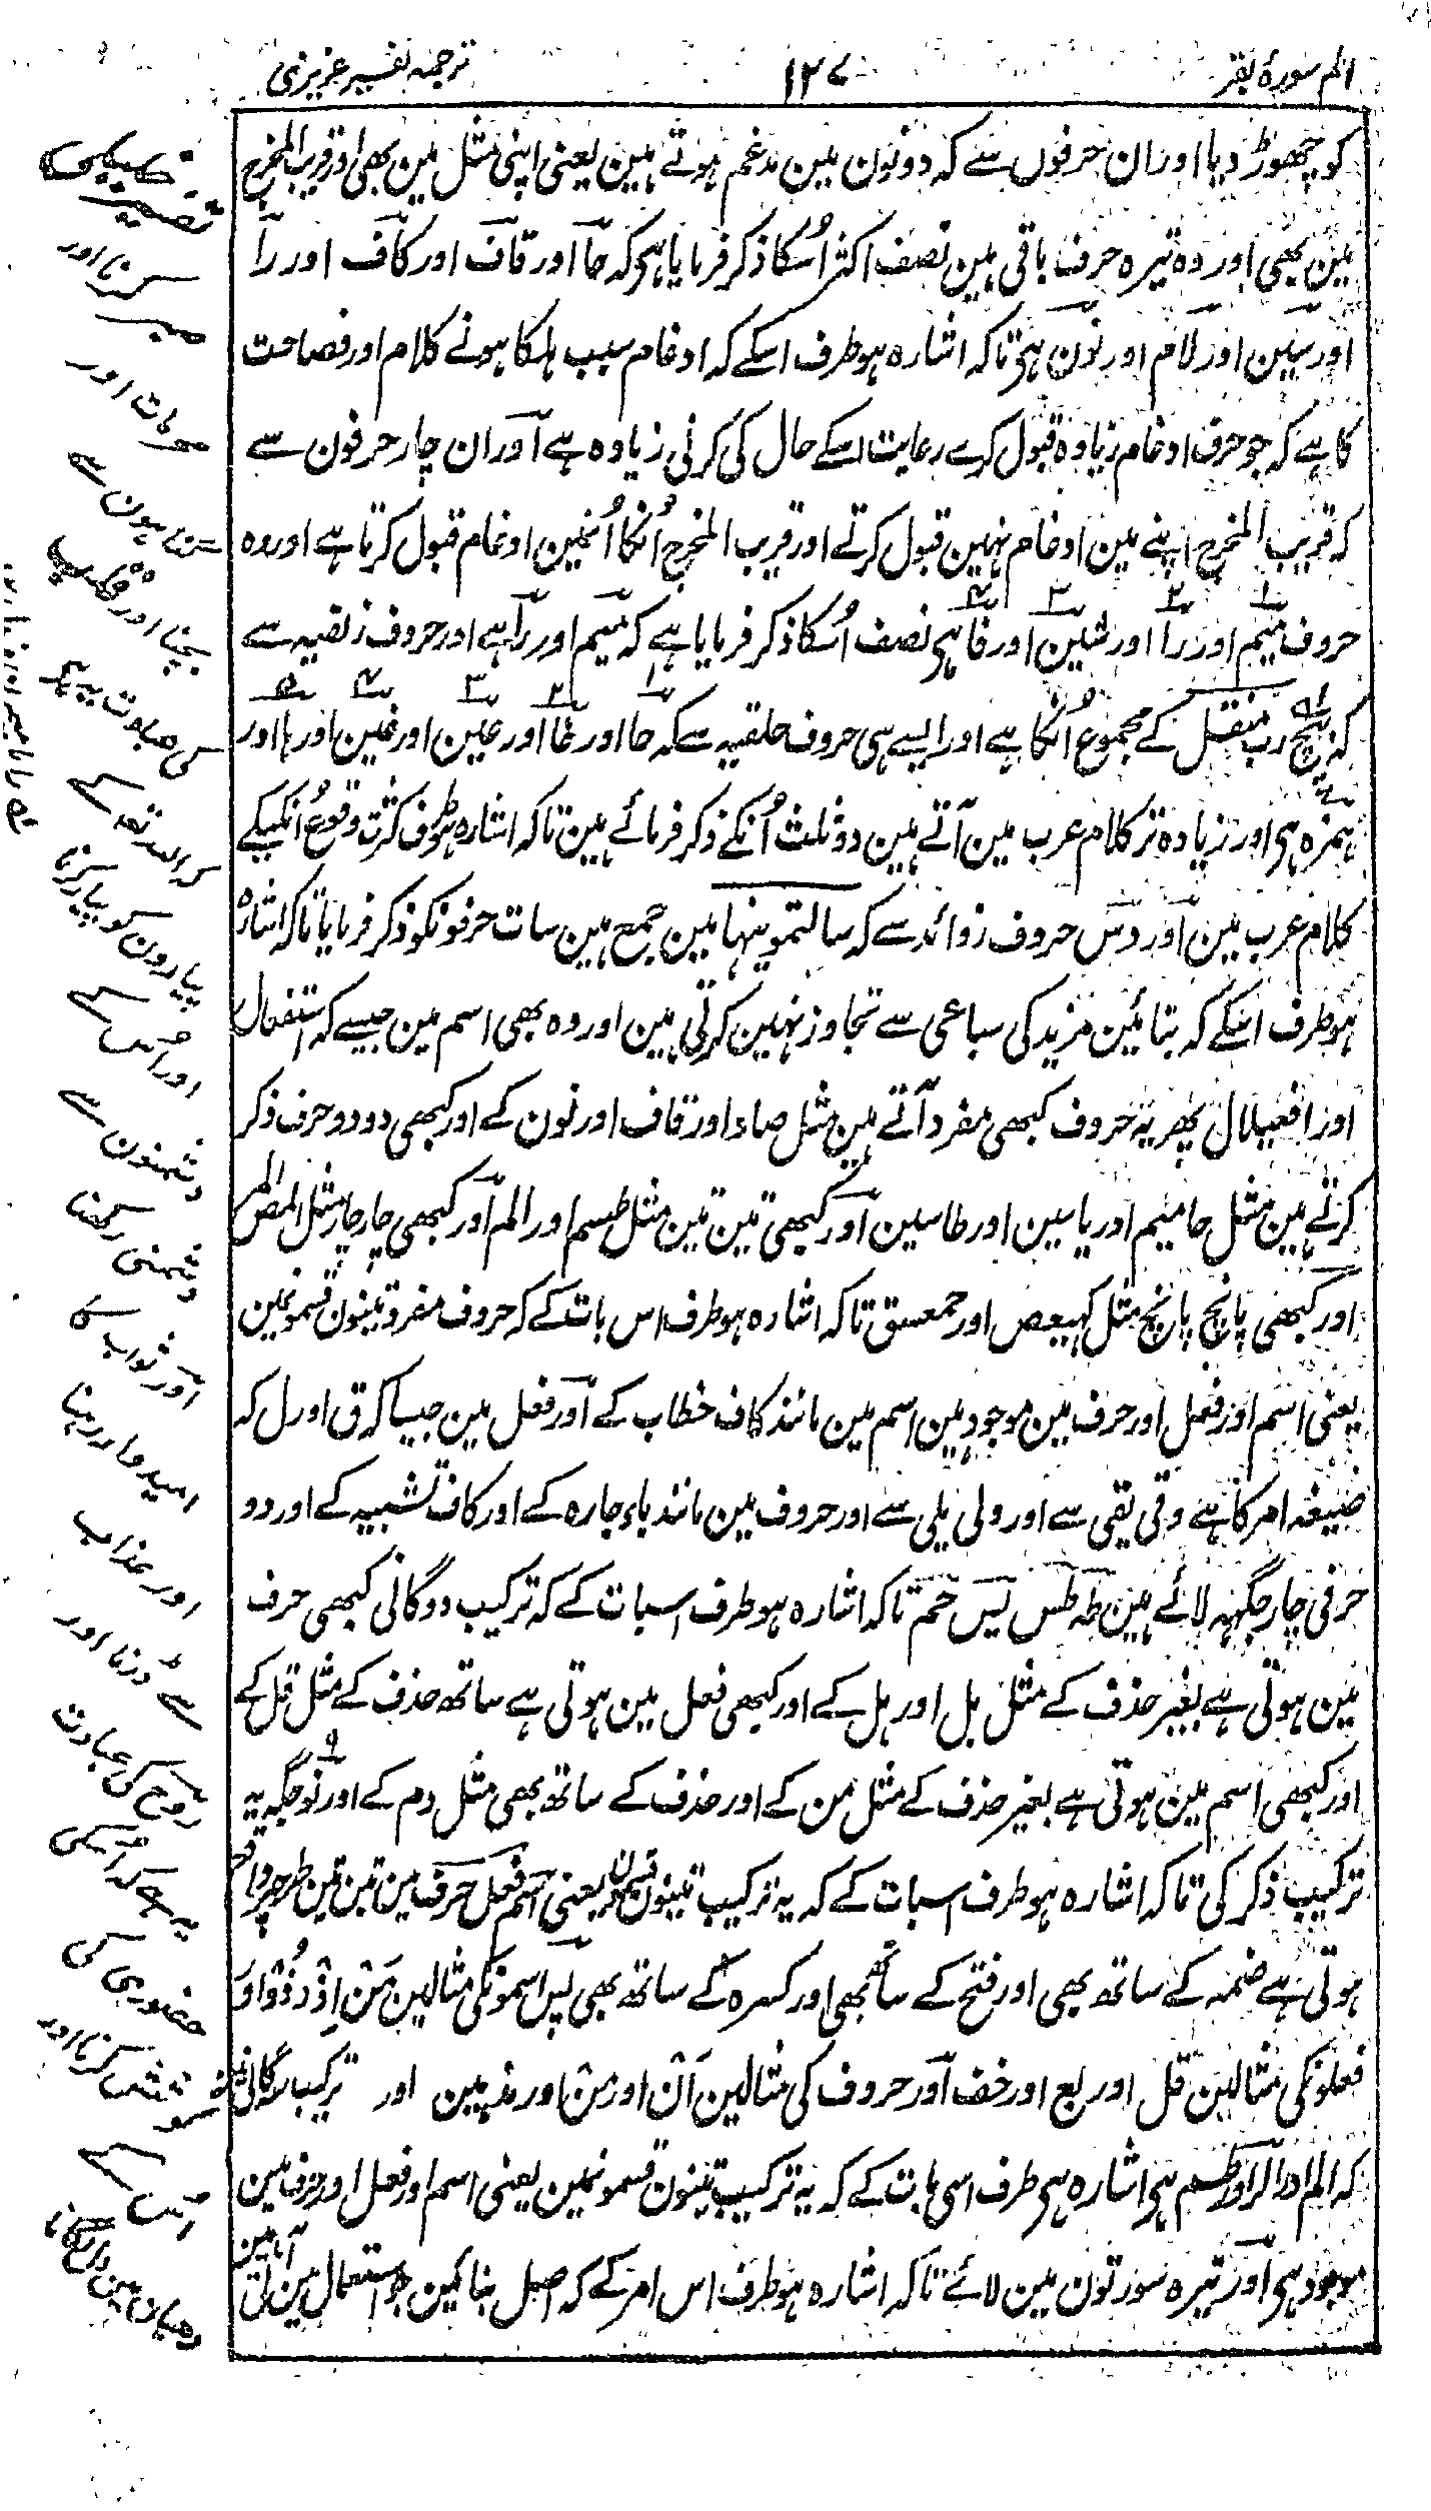 الم سورۂ بقر
۱۲۷
ترجمہ تفسیر عزیزی
کو چھوڑ دیا اور ان حرفوں سے کہ دونون مین مدغم ہوتے ہین یعنی اپنی مثل مین بھی اور قریب المخرج
مین بھی اور وہ تیرہ حرف باقی ہین نصف اکثر اُسکا ذکر فرمایا ہی کہ حا اور قاف اور کاف اور را
اور سین اور لام اور نون ہی تاکہ اشارہ ہو طرف اسکے کہ ادغام سبب ہلکا ہونے کلام اور فصاحت
کا ہے کہ جو حرف ادغام زیادہ قبول کرے رعایت اسکے حال کی کرنی زیادہ ہے اور ان چار حرفون سے
کہ قریب المخرج اپنے مین ادغام نہین قبول کرتے اور قریب المخرج اُنکا اُنمین ادغام قبول کرتا ہے اور وہ
حروف میم اور را اور شین اور فا ہی نصف اُسکا ذکر فرمایا ہے کہ میم اور را ہے اور حروف زلقیہ سے
کہ بیچ رب منفل کے مجموع اُنکا ہے اور ایسے ہی حروف حلقیہ سے کہ حا اور خا اور عین اور غین اور ہا اور
ہمزہ ہی اور زیادہ تر کلام عرب مین آتے ہین دو ثلث اُنکے ذکر فرمائے ہین تاکہ اشارہ ہو طرف کثرت وقوع انکیکے
کلام عرب مین اور دس حروف زوائد سے کہ سالتمونیہا مین جمع ہین سات حرفونکو ذکر فرمایا تاکہ اشارہ
ہو طرف اسکے کہ بنائین مزید کی سباعی سے تجاوز نہین کرتی ہین اور وہ بھی اسم مین جیسے کہ استفعال
اور افعیلال پھر یہ حروف کبھی مفرد آتے ہین مثل صاد اور قاف اور نون کے اور کبھی دو دو حرف ذکر
کرتے ہین مثل حامیم اور یاسین اور طاسین اور کبھی تین تین مثل طسم اور الم اور کبھی چار چار مثل المص المر
اور کبھی پانچ پانچ مثل کہیعص اور حمعسق تاکہ اشارہ ہو طرف اس بات کے کہ حروف مفرد تینون قسمونمین
یعنی اسم اور فعل اور حرف مین موجود ہین اسم مین مانند کاف خطاب کے اور فعل مین جیسا کہ ق اور ل کہ
صیغہ امر کا ہے وقی یقی سے اور ولی یلی سے اور حروف مین مانند باء جارہ کے اور کاف تشبیہ کے اور دو
حرفی چار جگہہ لائے ہین طہ طس یس حم تاکہ اشارہ ہو طرف اسبات کے کہ ترکیب دوگانی کبھی حرف
مین ہوتی ہے بغیر حذف کے مثل بل اور ہل کے اور کبھی فعل مین ہوتی ہے ساتھ حذف کے مثل قل کے
اور کبھی اسم مین ہوتی ہے بغیر حذف کے مثل من کے اور حذف کے ساتھ بھی مثل دم کے اور نو جگہ یہ
ترکیب ذکر کی تاکہ اشارہ ہو طرف اسبات کے کہ یہ ترکیب تینون یعنی اسم فعل حرف مین تین تین طرح پر واقع
ہوتی ہے ضمہ کے ساتھ بھی اور فتح کے ساتھ بھی اور کسرہ کے ساتھ بھی پس اسمونکی مثالین مَنْ اِذْ ذُوْ اور
فعلونکی مثالین قل اور بع اور خف اور حروف کی مثالین اَنْ اور مِنْ اور مذ ہین اور ترکیب سہ گانی
کہ الم اور الر اور طسم ہی اشارہ ہی طرف اسی بات کے کہ یہ ترکیب تینون قسمونمین یعنی اسم اور فعل اور حرف مین
موجود ہی اور تیرہ سورتون مین لائے تاکہ اشارہ ہو طرف اس امر کے کہ اصل بنائین جو استعمال مین آتی ہین
سرنا اور
صبر
اور
سے
بچنا اور
کے
پیارون کو پیار کرنا
اور اسکے
دشمنون سے
دشمنی رکھنا
اور ثواب کا
امیدوار رہنا
اور عذاب
سے ڈرنا اور
روح کی عبادت
یہ ہے کہ اسکی
حضوری کی
کوشش کرنا اور
اسکے
دھیان مین